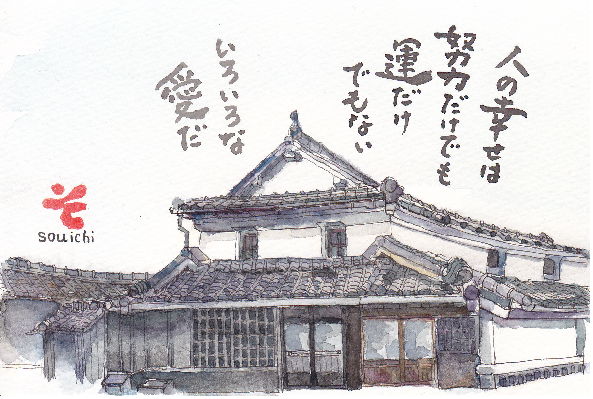 人の幸せは
努力だけでも
運だけ
でもない
いろいろな
愛だ
そ
souichi